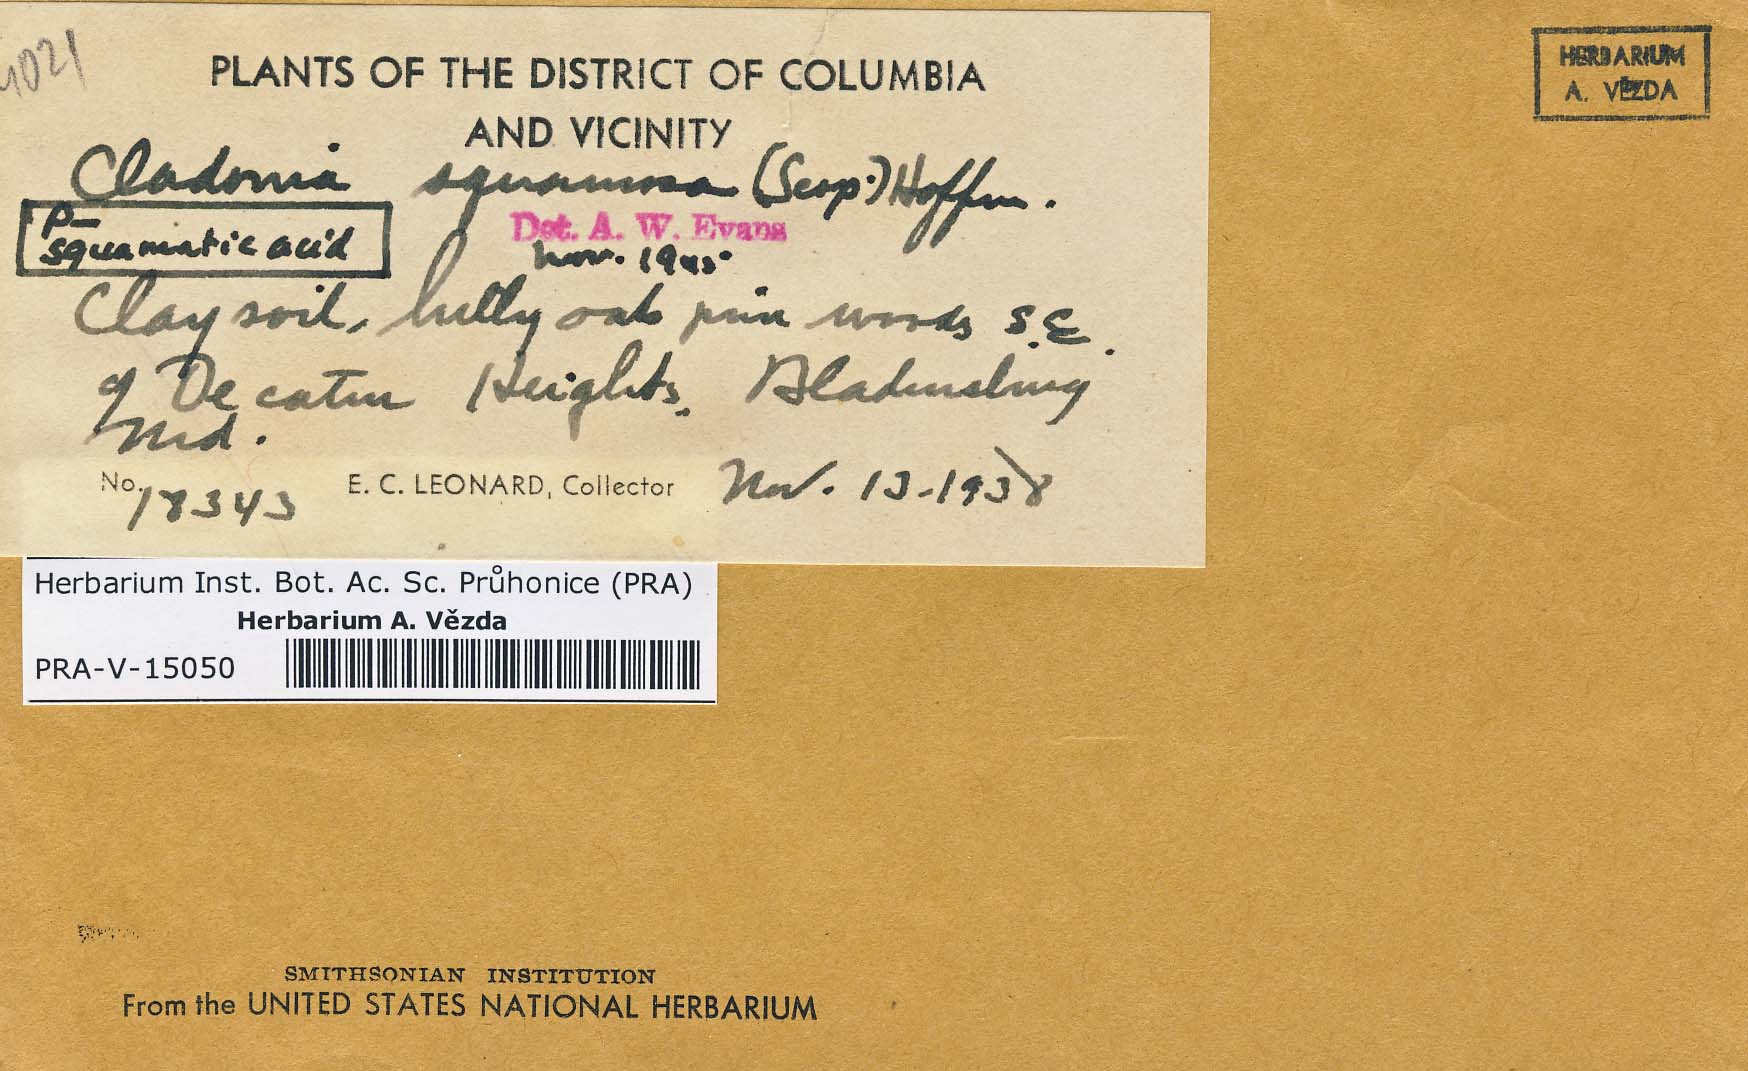 4021
PLANTS OF THE DISTRICT OF COLUMBIA
AND VICINITY
Cladonia squamosa (Scop.) Hoffm.
P-
squamatic acid
Det. A. W. Evans
Nov. 1945
Clay soil, hilly oak pine woods S.E.
of Decatur Heights, Bladensburg
Md.
No. 18343 E. C. LEONARD, Collector Nov. 13-1938
Herbarium Inst. Bot. Ac. Sc. Průhonice (PRA)
Herbarium A. Vězda
PRA-V-15050
HERBARIUM
A. VĚZDA
SMITHSONIAN INSTITUTION
From the UNITED STATES NATIONAL HERBARIUM